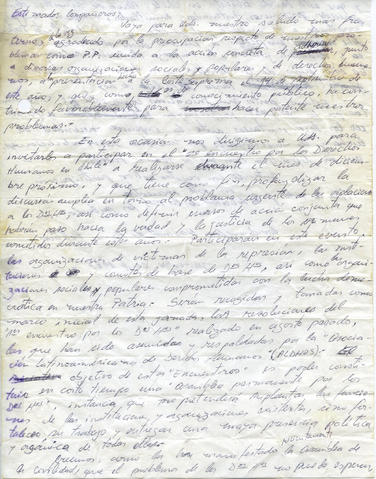 Estimados compañeros:
Vaya para Uds. nuestro saludo más fra-
terno y agradecido por la preocupación respecto de nuestra
como P.P. unido a la acción concreta de junto
a diversas organizaciones sociales y populares y de derechos huma-
nos, a presentación ante la Corte Suprema el de
este año, y que como es de conocimiento público, ha con-
tribuido favorablemente para hacer patente nuestros
problemas.-
En esta ocasión nos dirigimos a Uds. para
invitarlos a participar en el " Encuentro por los Derechos
Humanos en Chile" a realizarse durante el mes de diciem-
bre próximo, y que tiene como fin, profundizar la
discusión amplia en torno al problema urgente de las violaciones
a los DD.HH., así como definir cursos de acción conjunta que
abran paso hacia la verdad y la justicia de los crímenes
cometidos durante estos años. Participarán en este evento,
las organizaciones de víctimas de la represión, las insti-
tuciones y comités de base de DD.HH., así como organi-
zaciones sociales y populares comprometidas con la lucha demo-
crática en nuestra Patria. Serán recogidas y tomadas como
marco inicial de esta jornada, las resoluciones del
"1er encuentro por los DD.HH." realizado en agosto pasado,
las que han sido asumidas y respaldadas por la "Asocia-
ción Latinoamericana de Derechos Humanos" (ALDHU).- El
objetivo de estos "Encuentros" es poder consti-
tuir en corto tiempo una Asamblea permanente por los
DD.HH., instancia que no pretenderá suplantar las funcio-
nes de las instituciones y organizaciones existentes, sino for-
talecer su trabajo y entregar una mayor presencia política
y orgánica de todas ellas.
Creemos, como lo han manifestado la Asamblea de
la Civilidad, que el problema de los DD.HH. no puede esperar,